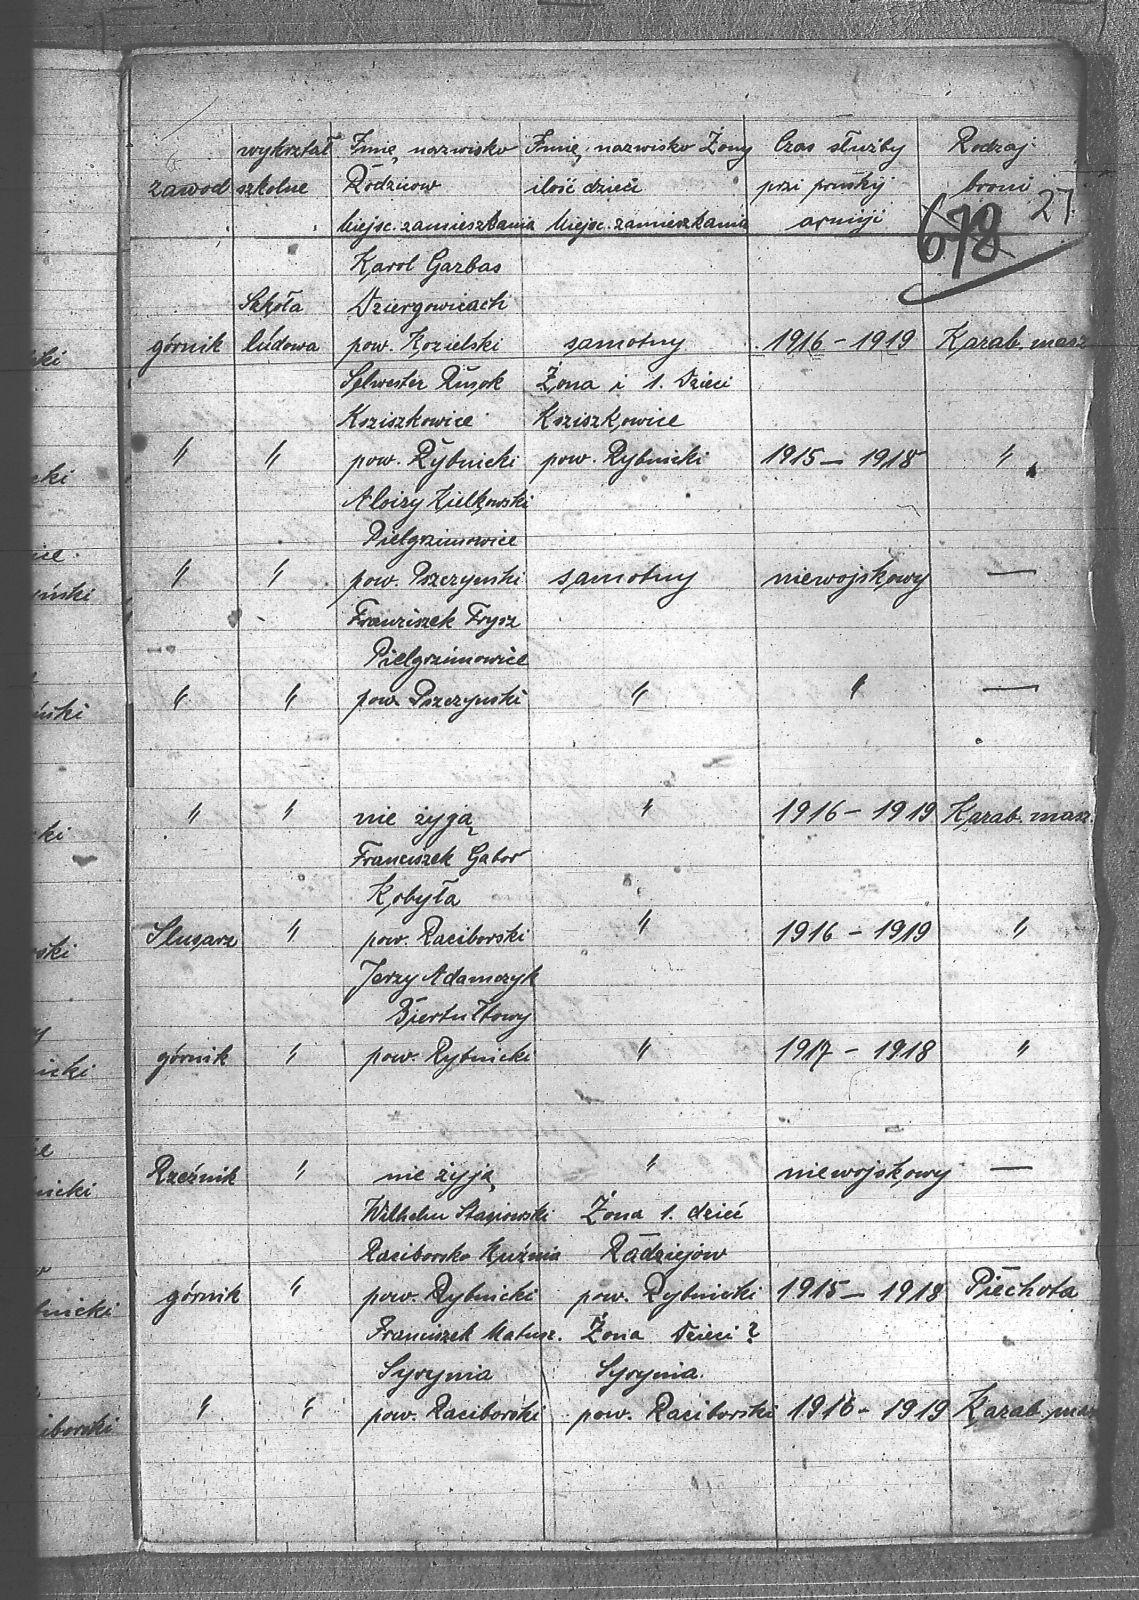 wykształ Imię nazwisko Imię, nazwisko Żony Czas służby Rodzaj
zawod szkolne Rodziców ilość dzieci przi pruskij broni 27.
Miejsc. zamieszkania Miejsc. zamieszkania armiji 678
Karol Garbas
Szkoła Dziergowicach
górnik lúdowa pow. Kozielski samotny 1916 – 1919 Karab. masz
Sylwester Rusok Żona i 1. Dzieci
Ksziszkowice Ksziszkowice
" " pow. Rybnicki pow. Rybnicki 1915 – 1918 "
Aloizy Zielkowski
Pielgrzimowice
" " pow. Pszczynski samotny niewojskowy —
Franziszek Frysz
Pielgrzimowice
" " pow. Pszczynski " " —
" " nie żyją " 1916 – 1919 Karab. masz.
Franciszek Gabor
Kobyła
Slusarz " pow. Raciborski " 1916 – 1919 "
Jerzy Adamczyk
Biertułtowy
górnik " pow. Rybnicki " 1917 – 1918 "
Rzeźnik " nie żyją " niewojskowy —
Wilhelm Żona 1. dzieć
Raciborsko Kuźnia Radziejów
górnik " pow. Rybnicki pow. Rybnicki 1915 – 1918 Piechota
Franciszek Matusz. Żona Dzieci?
Syrynia Syrynia.
" " pow. Raciborski pow. Raciborski 1916 – 1919 Karab. mas